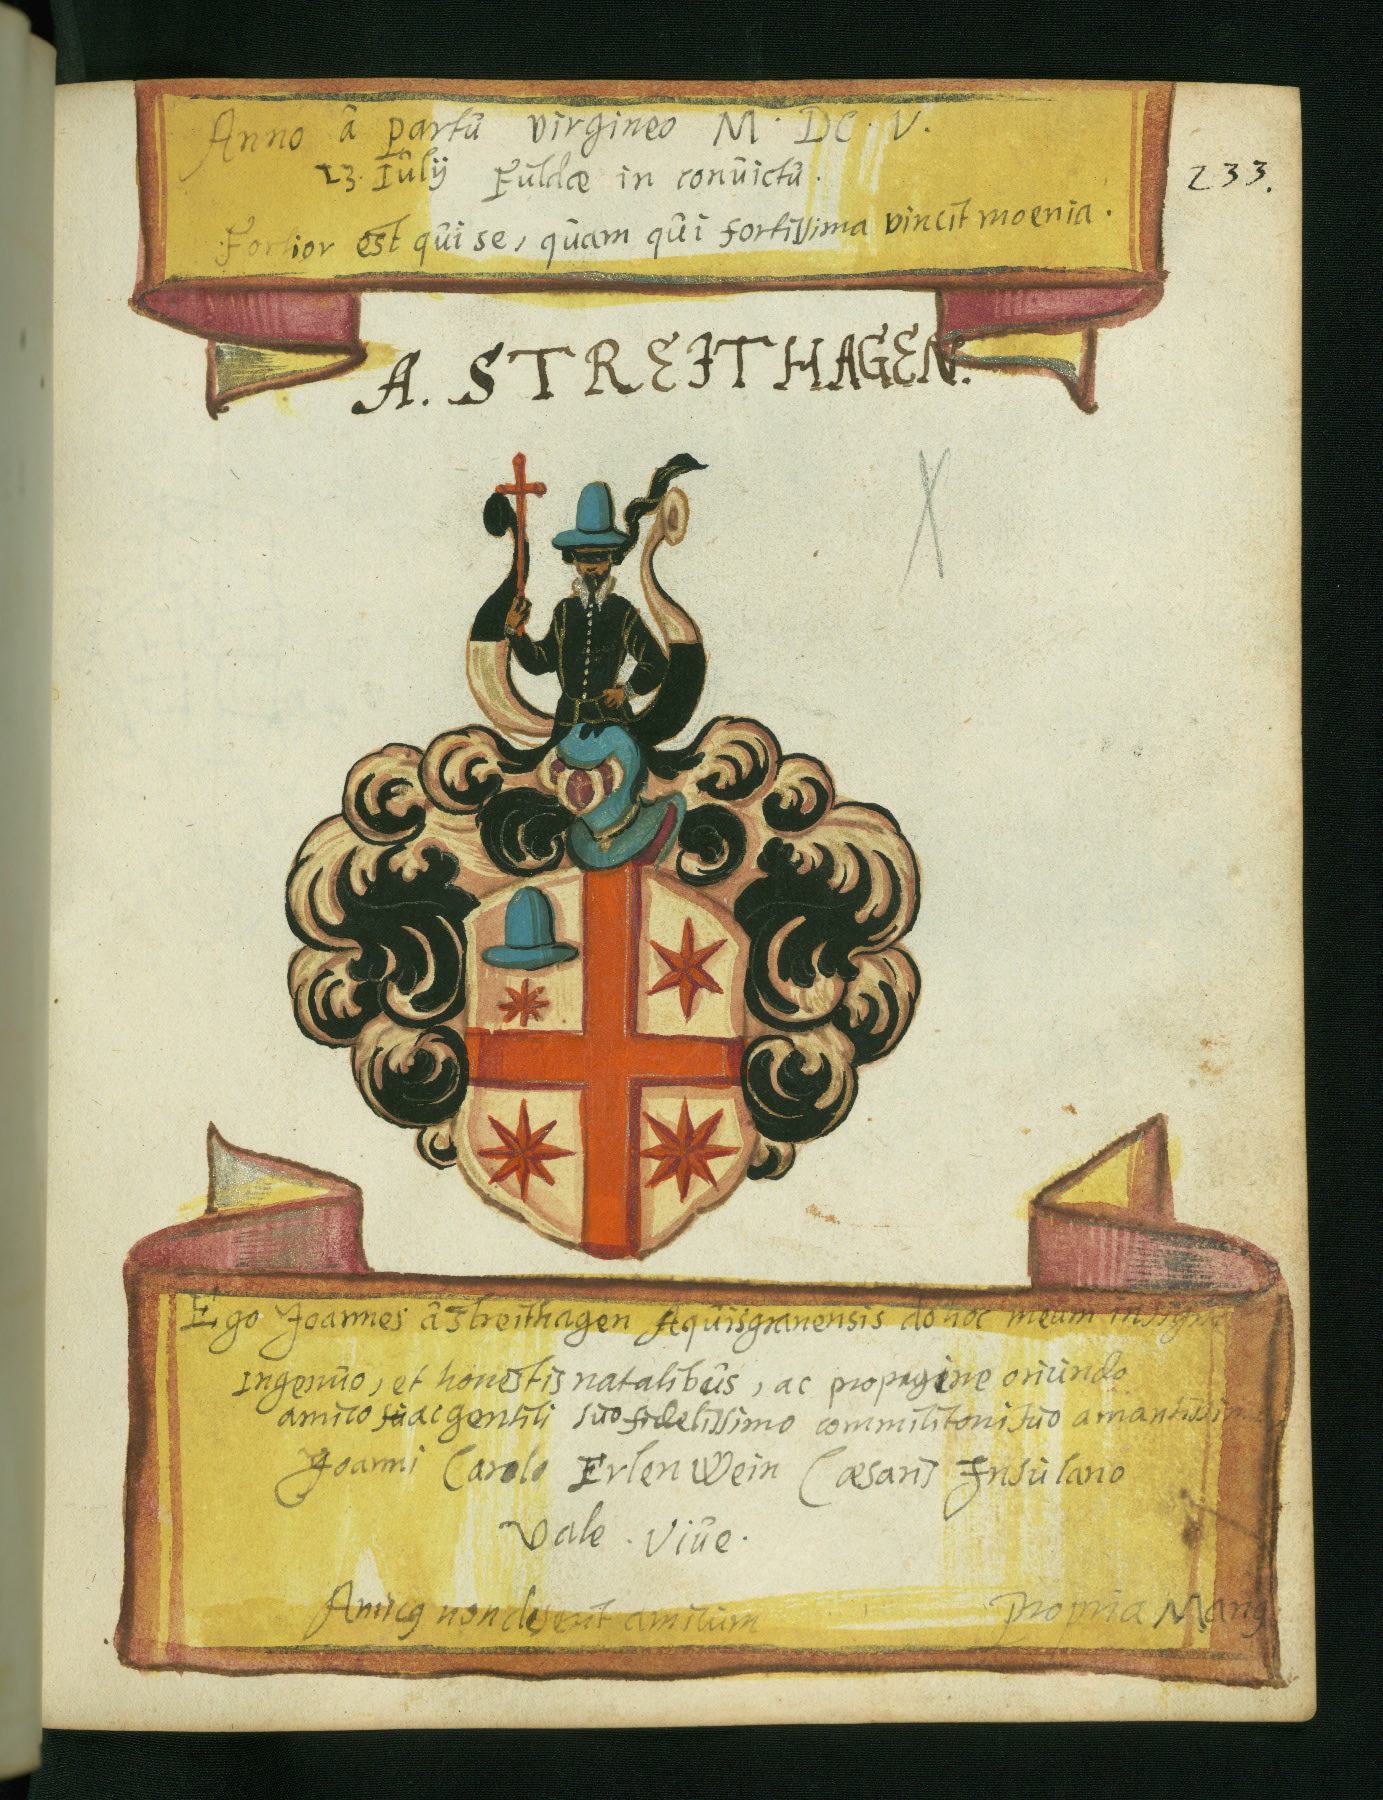 Anno â partû virgineo M. DC. V.
23. Iûlij Fûldæ in convictû.
233.
Fortior est qûi se, qûam qûi fortissima vincit moenia.
A. STREITHAGEN.
Ego Joannes â Streithagen Aqûisgranensis do hoc meum insigne
ingenûo, et honestis natalibûs, ac propagine oriûndo
amico sûo ac gentili sûo fidelissimo commilitoni sûo amantissimo
Joanni Carolo Erlenwein Cæsaris Insûlano
Vale. Viûe.
Amicq non amicum Propria Manq